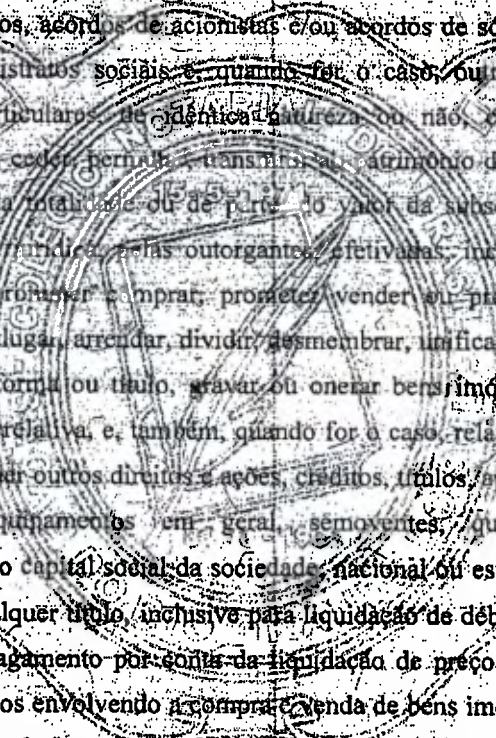 os, acordos de acionistas e/ou acordos de so
istratos sociais e, quando for o caso, ou
ticulares, de idêntica natureza ou não,
ceder, permutar, transferir ao patrimônio
a totalidade ou de parte do valor da subs
outorgantes, efetivadas,
rometer comprar, prometer vender ou pr
lugar, arrendar, dividir, desmembrar, unifica
forma ou título, gravar ou onerar bens imó
relativa, e, também, quando for o caso, rela
outros direitos e ações, créditos, títulos,
quipamentos em geral, semoventes, qu
o capital social da sociedade, nacional ou es
alquer título, inclusive para liquidação de déb
agamento por conta da liquidação de preço
os envolvendo a compra e venda de bens imó